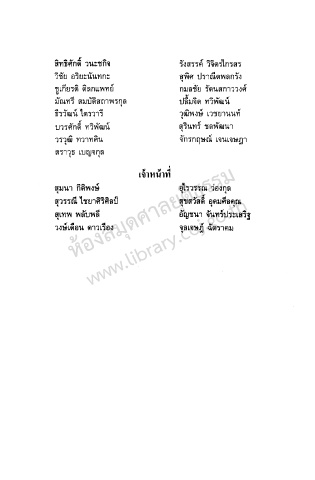 สิทธิศักดิ์ วนะชกิจ
วิชัย อริยะนันทกะ
ชูเกียรติ ดิลกแพทย์
มัณทรี สมบัติสถาพรกุล
ธีรวัฒน์ ไตรวารี
บวรศักดิ์ ทวิพัฒน์
วรวุฒิ ทวาทศิน
สราวุธ เบญจกุล
รังสรรค์ วิจิตรไกรสร
สุพิศ ปราณีตพลกรัง
กมลชัย รัตนสกาววงศ์
ปลื้มจิต ทวิพัฒน์
วุฒิพงษ์ เวชยานนท์
สุรินทร์ ชลพัฒนา
จักรกฤษณ์ เจนเจษฎา
เจ้าหน้าที่
สุมนา กิติพงษ์
สุวรรณี ไชยาศิริศิลป์
สุเทพ พลับพลี
วงษ์เดือน ดาวเรือง
อุไรวรรณ ว่องกุล
สุขสวัสดิ์ อุดมศีลคุณ
อัญชนา จันทร์ประเสริฐ
จุลเจษฎ์ ฉัตราคม
ห้องสมุดศาลยุติธรรม
www.library.coj.go.th